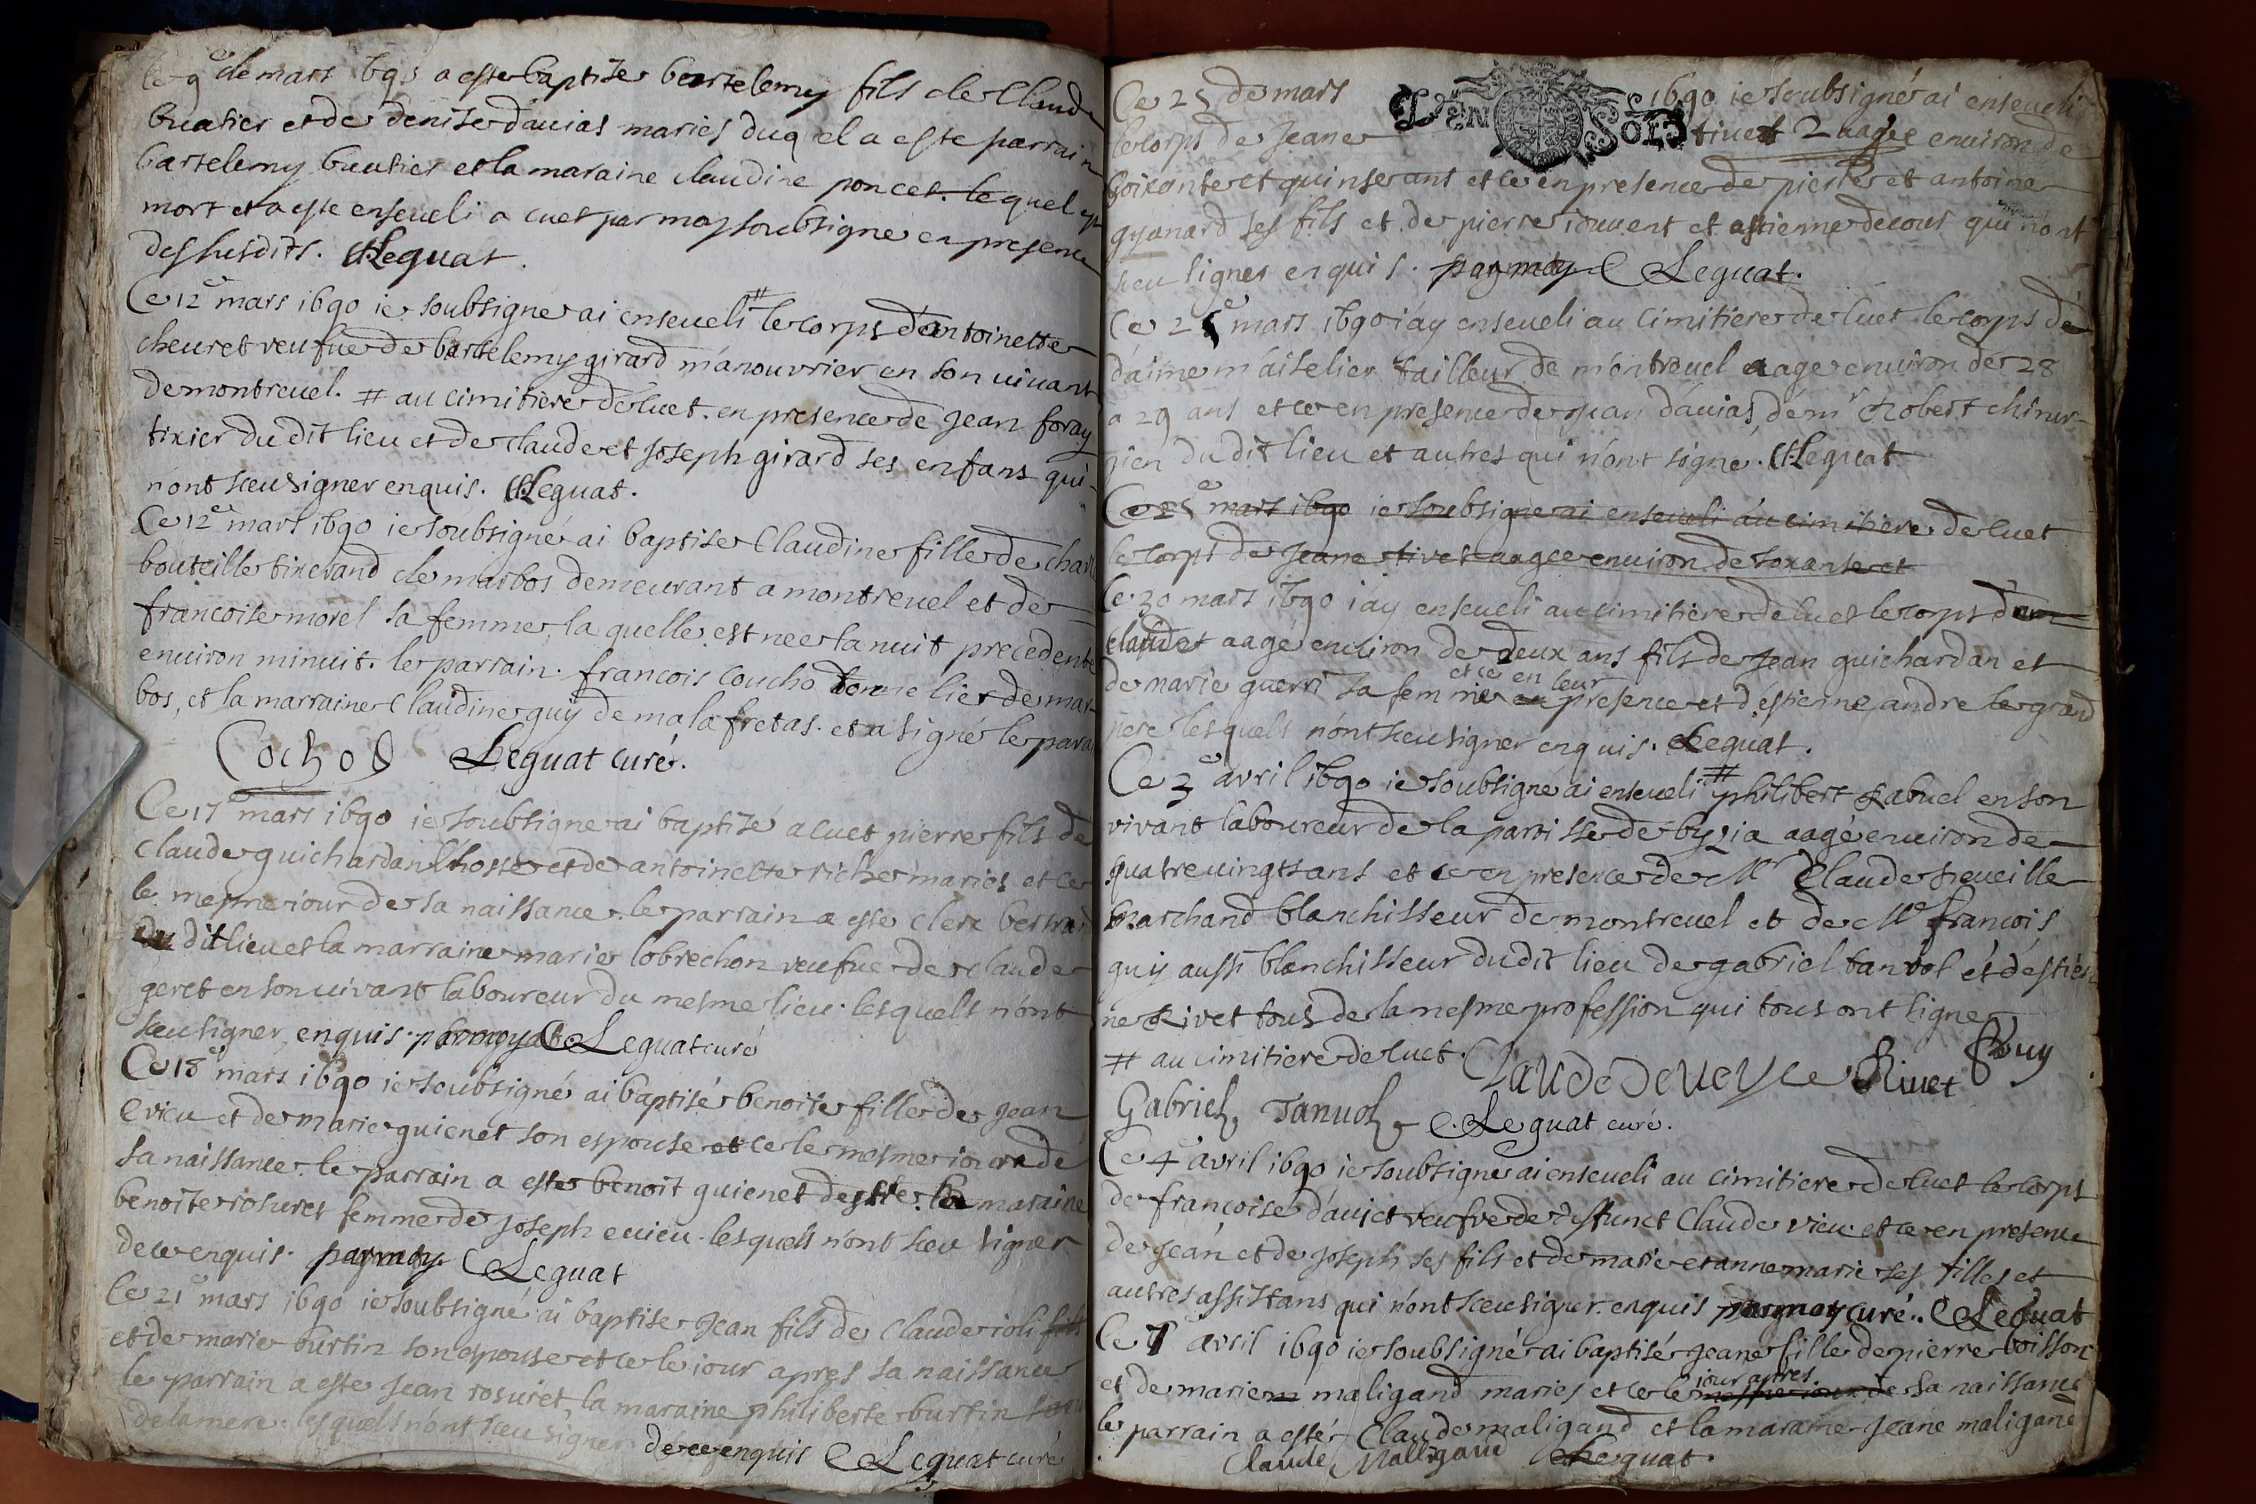 Ce 9e de mars 1690 a este baptise bartelemy fils de Claude
buatier et de denise dauias maries duq el a este parrain
bartelemy buatier et la maraine claudine poncet. lequel est
mort et a este enseueli a cuet par moy soubsigne en presence
des susdits. CLeguat.
Ce 12e mars 1690 ie soubsigne ai enseueli # le corps d'antoinette
cheuret veufue de bartelemy girard manouurier en son uiuant
de montreuel. # au cimitiere de Cuet. en presence de Jean foray
tixier du dit lieu et de claude et Joseph girard ses enfans qui
n'ont sceu signer enquis. CLeguat.
Ce 12e mars 1690 ie soubsigné ai baptise Claudine fille de charle
bouteille tixerand de marbos demeurant a montreuel et de
francoise morel sa femme, la quelle est nee la nuit precedente
enuiron minuit. le parrain. francois Couchod tonnelier de mar-
bos, et la marraine Claudine guy de malafretas. et a signé le parain
Cochod CLeguat curé.
Ce 17e mars 1690 ie soubsigne ai baptisé a cuet pierre fils de
Claude guichardan hoste et de antoinette riche maries et ce
le mesme iour de sa naissance. le parrain a este clere bertrand
du dit lieu et la marraine marie lobrechon veufue de claude
geret en son uiuant laboureur du mesme lieu. lesquels n'ont
sceu signer enquis. par moy CLeguat curé
Ce 18e mars 1690 ie soubsigné ai baptisé benoite fille de Jean
euieu et de marie guienet son espouse et ce le mesme iour de
sa naissance. le parrain a este benoit guienet la maraine
benoite rosuret femme de Joseph euieu. lesquels n'ont sceu signer
de ce enquis. par moy CLeguat
Ce 21e mars 1690 ie soubsigné ai baptise Jean fils de Claude ioli fils
et de marie burtin son espouse et ce le iour apres sa naissance
le parrain a este Jean rosuret, la maraine philiberte burtin
de la mere. lesquels n'ont sceu signer de ce enquis CLeguat curé
Ce 25 de mars 1690 ie soubsigné ai enseueli
DEN SOLS
le corps de Jeane tiuet aagee enuiron de
soixante et quinse ans et ce en presence de pierre et antoine
gyanard ses fils et de pierre iouuent et estienne decour qui n'ont
sceu signer enquis. par moy CLeguat.
Ce 25e mars 1690 i'ay enseueli au cimitiere de Cuet le corps de
d'aime maiselier tailleur de montreuel aage enuiron de 28
a 29 ans et ce en presence de Jean dauias, de mr Robert chirur-
gien du dit lieu et autres qui n'ont signé. CLeguat
Ce 25e mars 1690 ie soubsigne ai enseueli au cimitiere de Cuet
le corps de Jeane tiuet aagee enuiron de soxante et
Ce 30 mars 1690 i'ay enseueli au cimitiere de Cuet le corps
claude aagé enuiron de deux ans fils de Jean guichardan et
de marie guerri sa femme et ce en leur presence et d'estienne andre le grand
pere lesquels n'ont sceu signer enquis. CLeguat.
Ce 3e avril 1690 ie soubsigné ai enseueli # philibert Rabuel en son
viuant laboureur de la parrisse de byzia aagé enuiron de
quatre uingts ans et ce en presence de Mr Claude
marchand blanchisseur de montreuel et de Mr francois
guy aussi blanchisseur du dit lieu de gabriel tanuol et d'estien
ne Riuet tous de la mesme profession qui tous ont signe
# au cimitiere de Cuet. Claude Riuet Guy
Gabriel Tanuol CLeguat curé.
Ce 4e avril 1690 ie soubsigne ai enseueli au cimitiere de Cuet le corps
de francoise dauiet veufve de deffunct Claude vieu et ce en presence
de Jean et de Joseph ses fils et de marie et anne marie ses filles et
autres assistans qui n'ont sceu signer enquis par moy curé. CLeguat
Ce 7e avril 1690 ie soubsigné ai baptisé Jeane fille de pierre boisson
et de marie maligand maries et ce le iour apres sa naissance
le parrain a esté Claude maligand et la maraine Jeane maligand
Claude Malligand CLeguat.